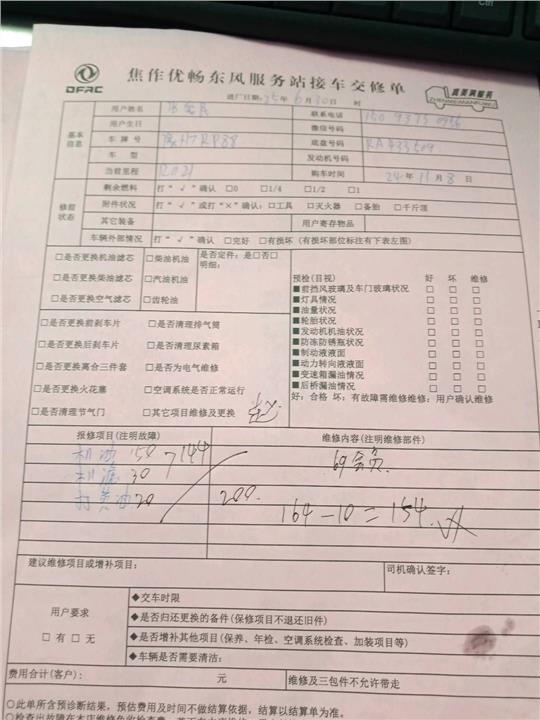 Ctrl
DFAC
焦作优畅东风服务站接车交修单
真美满服务
ZHENMEIMANFUWU
进厂日期:25年6月30日 时
基本信息
用户姓名 联系电话
用户生日 微信号码
车牌号 底盘号码 RA433509
车型 发动机号码
当前里程 12021 购车时间 24年11月8日
修前状态
剩余燃料 打“√”确认 □0 □1/4 □1/2 □1
附件状况 打“√”或打“×”确认:□工具 □灭火器 □备胎 □千斤顶
其它装备 用户寄存物品
车辆外部情况 打“√”确认 □完好 □有损坏(有损坏部位标注有下表左图)
□是否更换机油滤芯 □柴油机油
□是否更换柴油滤芯 □汽油机油
□是否更换空气滤芯 □齿轮油
是否定件:是□否□
明细:
□是否更换前刹车片 □是否清理排气筒
□是否更换后刹车片 □是否清理尿素箱
□是否更换离合三件套 □是否为电气维修
□是否更换火花塞 □空调系统是否正常运行
□是否清理节气门 □其它项目维修及更换
预检(目视) 好 坏 维修
■前挡风玻璃及车门玻璃状况 □ □ □
■灯具情况 □ □ □
■油量状况 □ □ □
■轮胎状况 □ □ □
■发动机机油状况 □ □ □
■防冻防锈瓶状况 □ □ □
■制动液液面 □ □ □
■动力转向液液面 □ □ □
■变速箱漏油情况 □ □ □
■后桥漏油情况 □ □ □
好:合格 坏:有故障需维修维修:用户确认维修
报修项目(注明故障) 维修内容(注明维修部件)
机油 150 7144
机滤 30
打黄油 20 200.
164-10=154.
建议维修项目或增补项目: 司机确认签字:
用户要求
□有 □无
◆交车时限
◆是否归还更换的备件(保修项目不退还旧件)
◆是否增补其他项目(保养、年检、空调系统检查、加装项目等)
◆车辆是否需要清洁:
费用合计(客户): 元 维修及三包件不允许带走
○此单所含预诊断结果,预估费用及时间不做结算依据,结算以结算单为准。